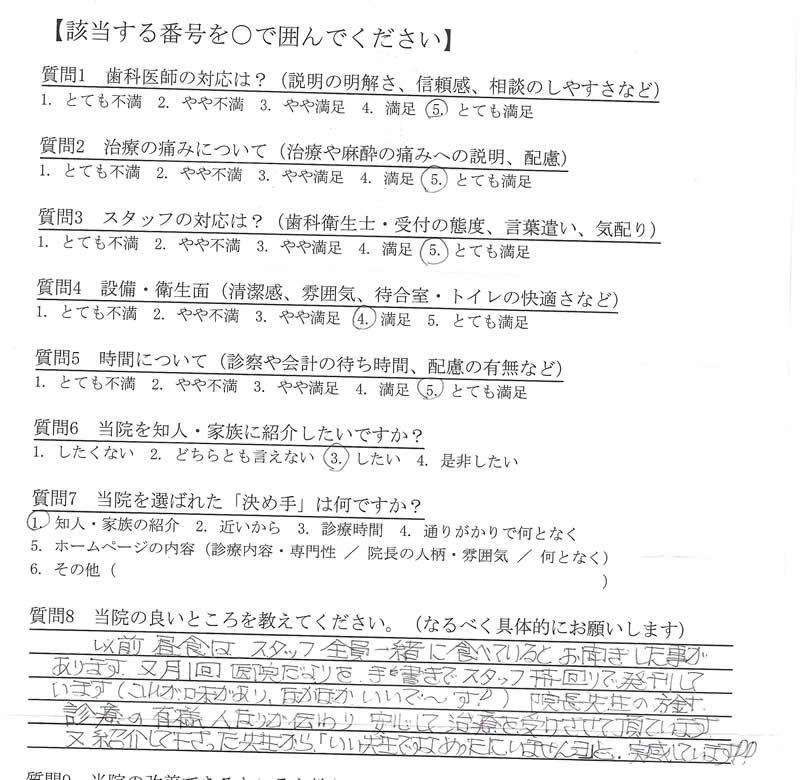 【該当する番号を○で囲んでください】
質問1　歯科医師の対応は？（説明の明解さ、信頼感、相談のしやすさなど）
1. とても不満　2. やや不満　3. やや満足　4. 満足　5. とても満足
質問2　治療の痛みについて（治療や麻酔の痛みへの説明、配慮）
1. とても不満　2. やや不満　3. やや満足　4. 満足　5. とても満足
質問3　スタッフの対応は？（歯科衛生士・受付の態度、言葉遣い、気配り）
1. とても不満　2. やや不満　3. やや満足　4. 満足　5. とても満足
質問4　設備・衛生面（清潔感、雰囲気、待合室・トイレの快適さなど）
1. とても不満　2. やや不満　3. やや満足　4. 満足　5. とても満足
質問5　時間について（診察や会計の待ち時間、配慮の有無など）
1. とても不満　2. やや不満　3. やや満足　4. 満足　5. とても満足
質問6　当院を知人・家族に紹介したいですか？
1. したくない　2. どちらとも言えない　3. したい　4. 是非したい
質問7　当院を選ばれた「決め手」は何ですか？
1. 知人・家族の紹介　2. 近いから　3. 診療時間　4. 通りがかりで何となく
5. ホームページの内容（診療内容・専門性 ／ 院長の人柄・雰囲気 ／ 何となく）
6. その他（　　　）
質問8　当院の良いところを教えてください。（なるべく具体的にお願いします）
以前 昼食は スタッフ 全員一緒に食べているとお聞きした事が
あります. 又月1回 医院だよりを、手書きでスタッフ持回りで発刊して
います（これが味があり、なかなか いいで〜す!!）院長先生の方針.
診療の有様 人なりが伝わり 安心して 治療を受けさせて頂ています
又 紹介して下さった先生から、「いい先生ではめったにいません」と、実感しています!!